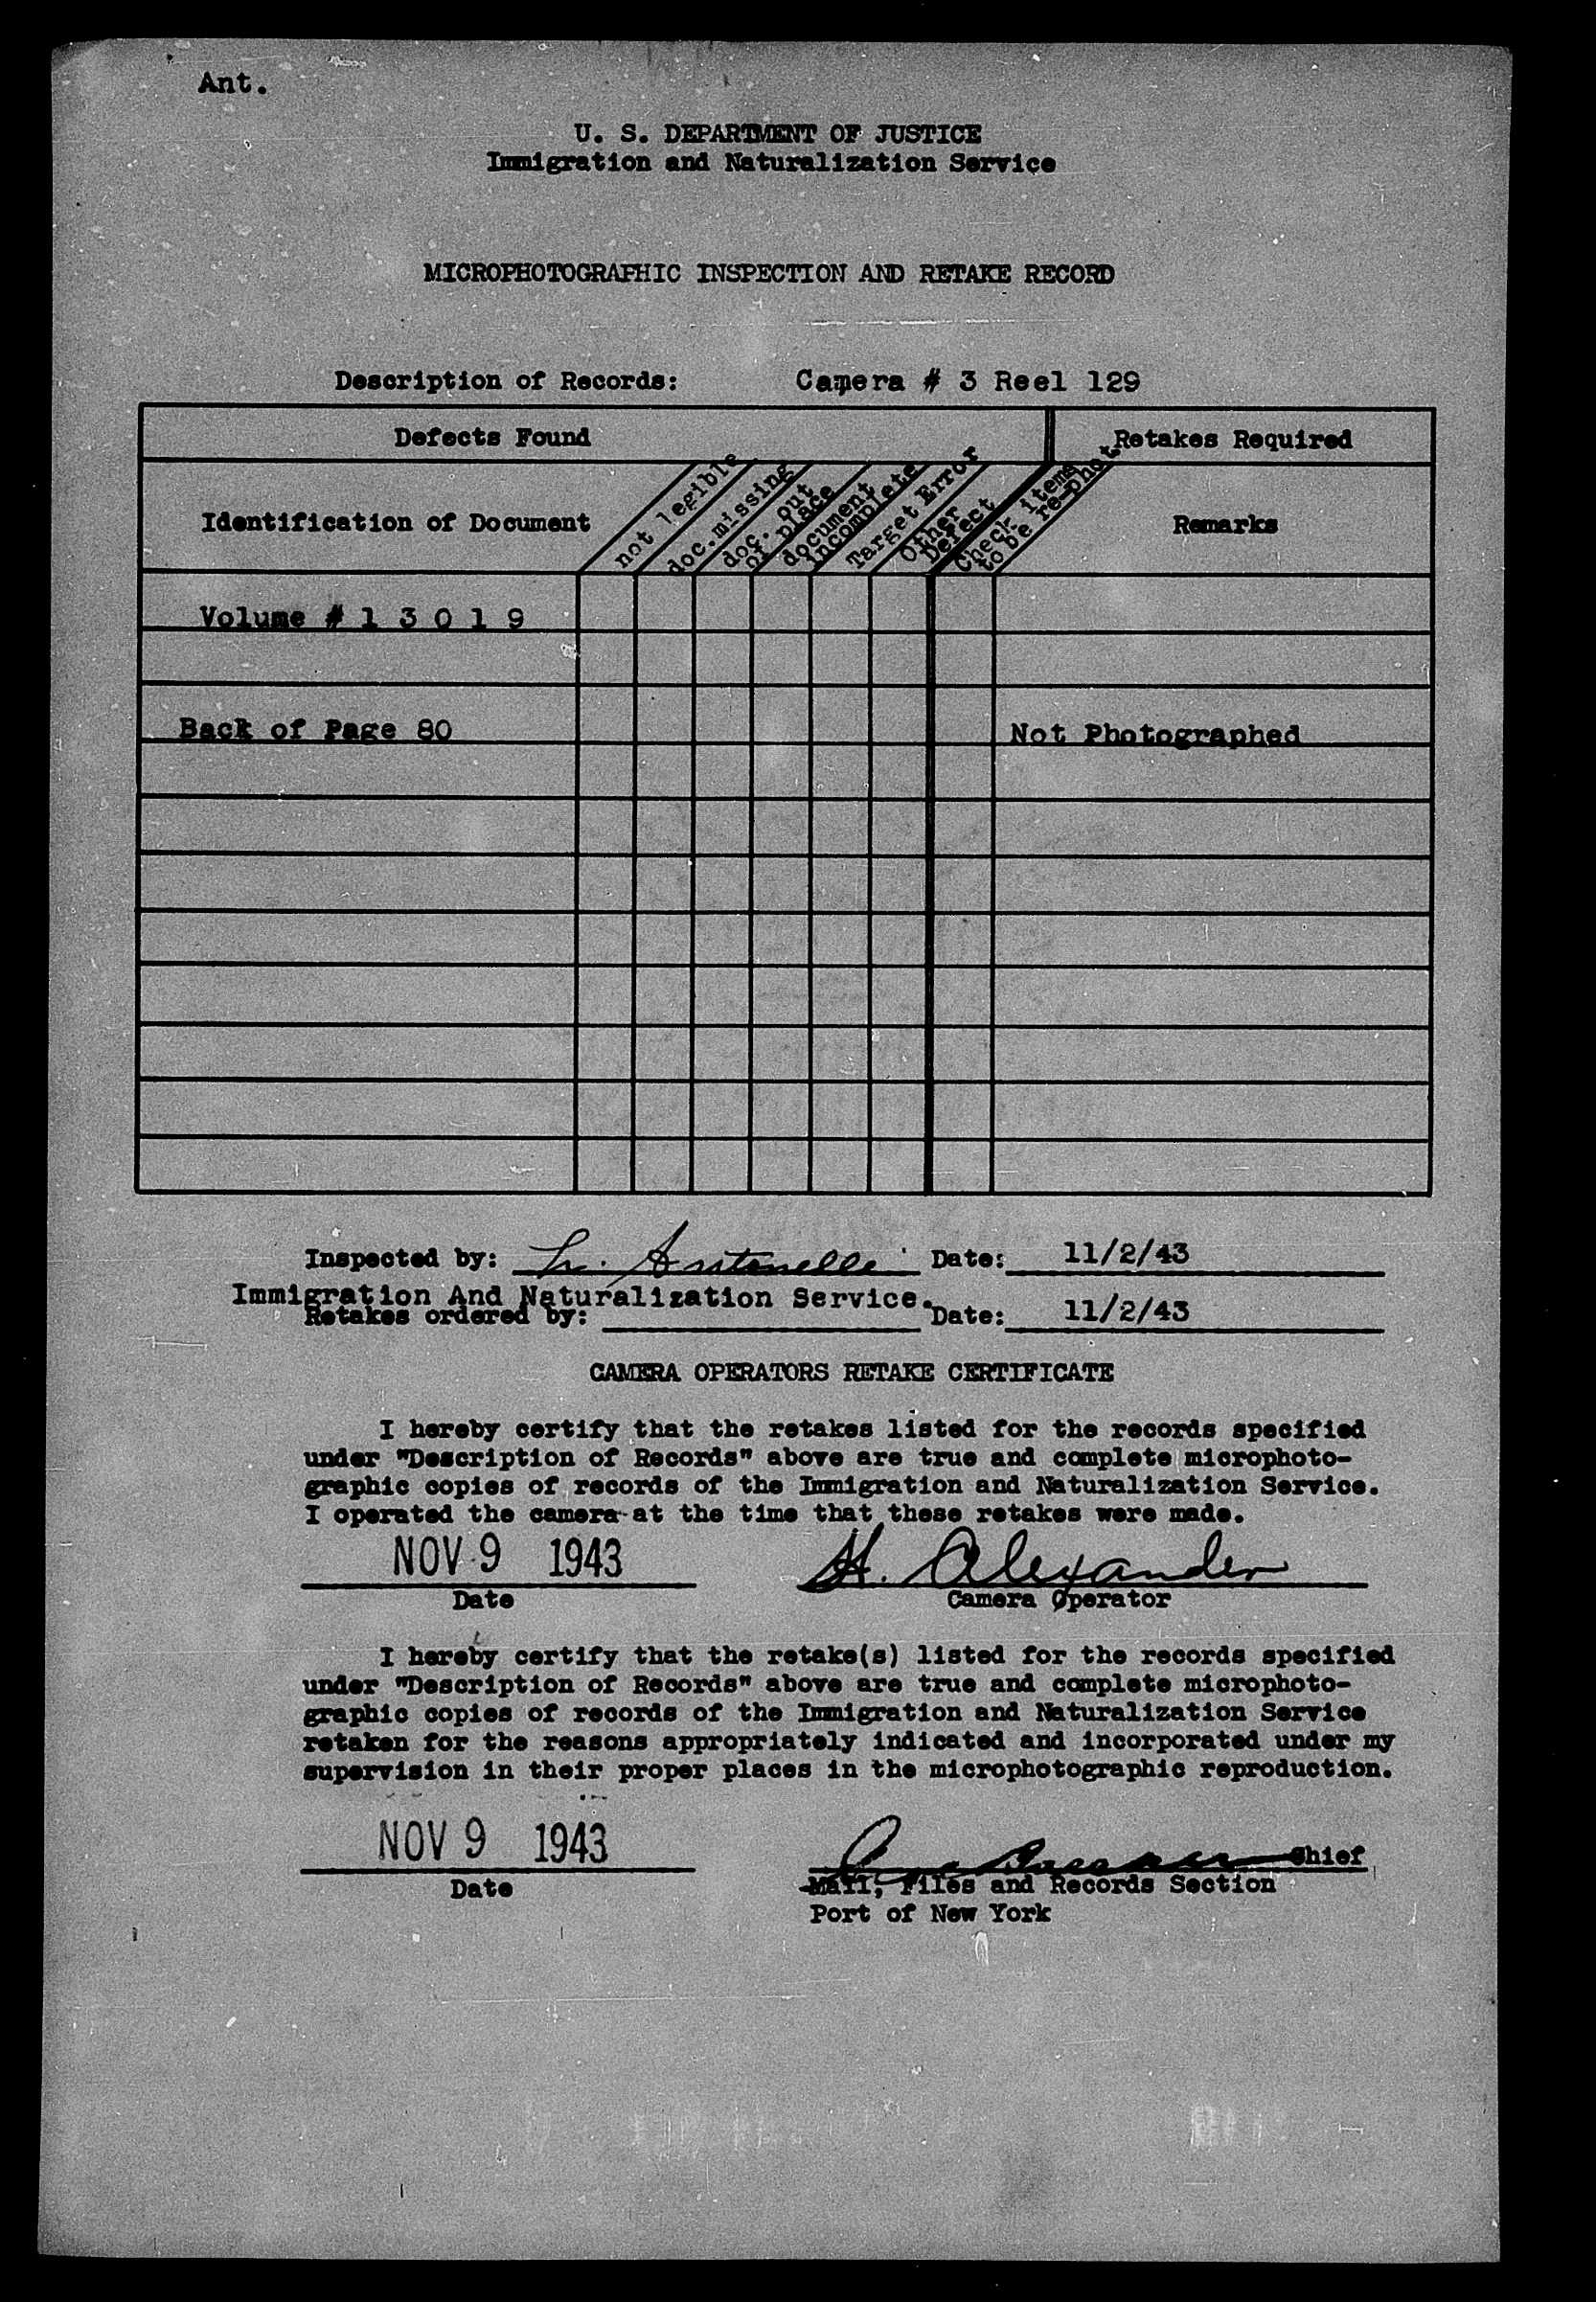 Ant.
U. S. DEPARTMENT OF JUSTICE
Immigration and Naturalization Service
MICROPHOTOGRAPHIC INSPECTION AND RETAKE RECORD
Description of Records: Camera # 3 Reel 129
Defects Found
Retakes Required
Identification of Document
not legible
doc. missing
doc. out
of place
document
incomplete
Target Error
Other
Defect
Check items
to be re-phot.
Remarks
Volume # 1 3 0 1 9
Back of Page 80
Not Photographed
Inspected by: Antonelli Date: 11/2/43
Immigration And Naturalization Service.
Retakes ordered by: Date: 11/2/43
CAMERA OPERATORS RETAKE CERTIFICATE
I hereby certify that the retakes listed for the records specified
under "Description of Records" above are true and complete microphoto-
graphic copies of records of the Immigration and Naturalization Service.
I operated the camera at the time that these retakes were made.
NOV 9 1943 H. Alexander
Date Camera Operator
I hereby certify that the retake(s) listed for the records specified
under "Description of Records" above are true and complete microphoto-
graphic copies of records of the Immigration and Naturalization Service
retaken for the reasons appropriately indicated and incorporated under my
supervision in their proper places in the microphotographic reproduction.
NOV 9 1943 Chief
Date Mail, Files and Records Section
Port of New York